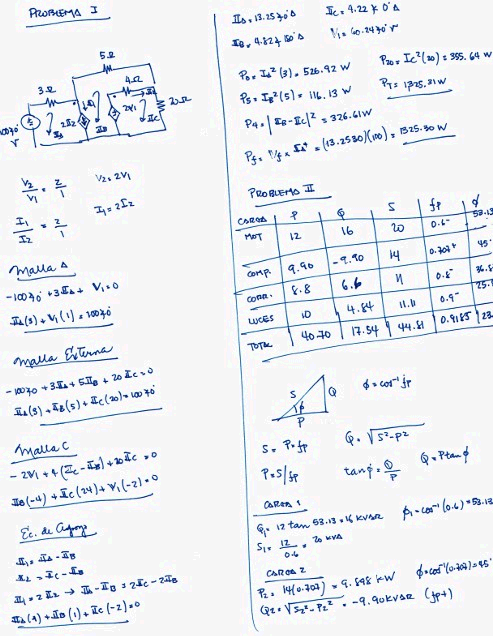 PROBLEMA I
5Ω
3Ω
4Ω
20Ω
100∠0° V
2I2
2V1
IA
IB
IC
V2/V1 = 2/1
V2 = 2V1
I1/I2 = 2/1
I1 = 2I2
Malla A
-100∠0° + 3IA + V1 = 0
IA(3) + V1(1) = 100∠0°
Malla Externa
-100∠0 + 3IA + 5IB + 20IC = 0
IA(3) + IB(5) + IC(20) = 100∠0°
Malla C
-2V1 + 4(IC - IB) + 20IC = 0
IB(-4) + IC(24) + V1(-2) = 0
Ec. de
I1 = IA - IB
I2 = IC - IB
I1 = 2I2 → IA - IB = 2IC - 2IB
IA(1) + IB(1) + IC(-2) = 0
IA = 13.25∠0° A
IC = 4.22∠0° A
IB = 4.82∠180° A
V1 = 60.24∠0° V
P3 = IA²(3) = 526.92 W
P20 = IC²(20) = 355.64 W
P5 = IB²(5) = 116.13 W
PT = 1325.31 W
P4 = |IB - IC|² = 326.61 W
Pf = Vf x IA* = (13.2530)(100) = 1325.30 W
PROBLEMA II
CARGA P Q S fp φ
MOT 12 16 20 0.6- 53.13
COMP. 9.90 -9.90 14 0.707+ 45°
CORR. 8.8 6.6 11 0.8- 36.8
LUCES 10 4.84 11.11 0.9- 25.
TOTAL 40.70 17.54 44.31 0.9185 23.
S
Q
φ
P
φ = cos⁻¹ fp
S = P÷fp
Q = √S²-P²
P = S/fp
tan φ = Q/P
Q = P tan φ
CARGA 1
Q1 = 12 tan 53.13 = 16 KVAR
φ1 = cos⁻¹(0.6) = 53.13
S1 = 12/0.6 = 20 KVA
CARGA 2
P2 = 14(0.707) = 9.898 KW
φ = cos⁻¹(0.707) = 45°
Q2 = √S2²-P2² = -9.90 KVAR (fp+)